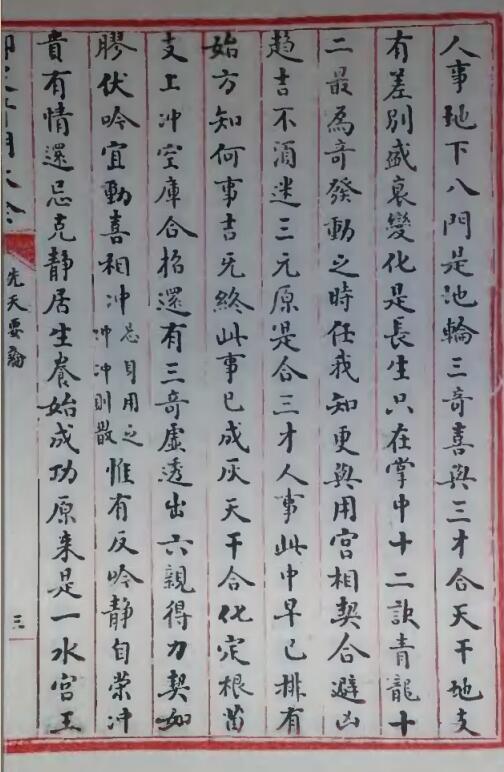 人事地下八門是池輪三奇喜與三才合天干地支
有差別盛衰變化是長生只在掌中十二訣青龍十
二最爲奇發動之時任我知更與用宮相契合避凶
趋吉不須迷三元原是合三才人事此中早已排有
始方知何事吉旡終此事已成灰天干合化定根苗
支上冲空庫合招還有三奇虛透出六親得力契如
膠伏吟宜動喜相冲忌用之冲冲則散惟有反吟靜自榮冲
貴有情還忌克靜居生養始成功原来是一水宮王
先天要論
三